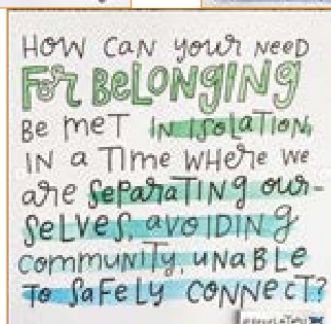 HOW CAN YOUR NEED
FOR BELONGING
BE MET IN ISOLATION,
IN A TIME WHERE WE
ARE SEPARATING OUR-
SELVES, AVOIDING
COMMUNITY, UNABLE
TO SAFELY CONNECT?